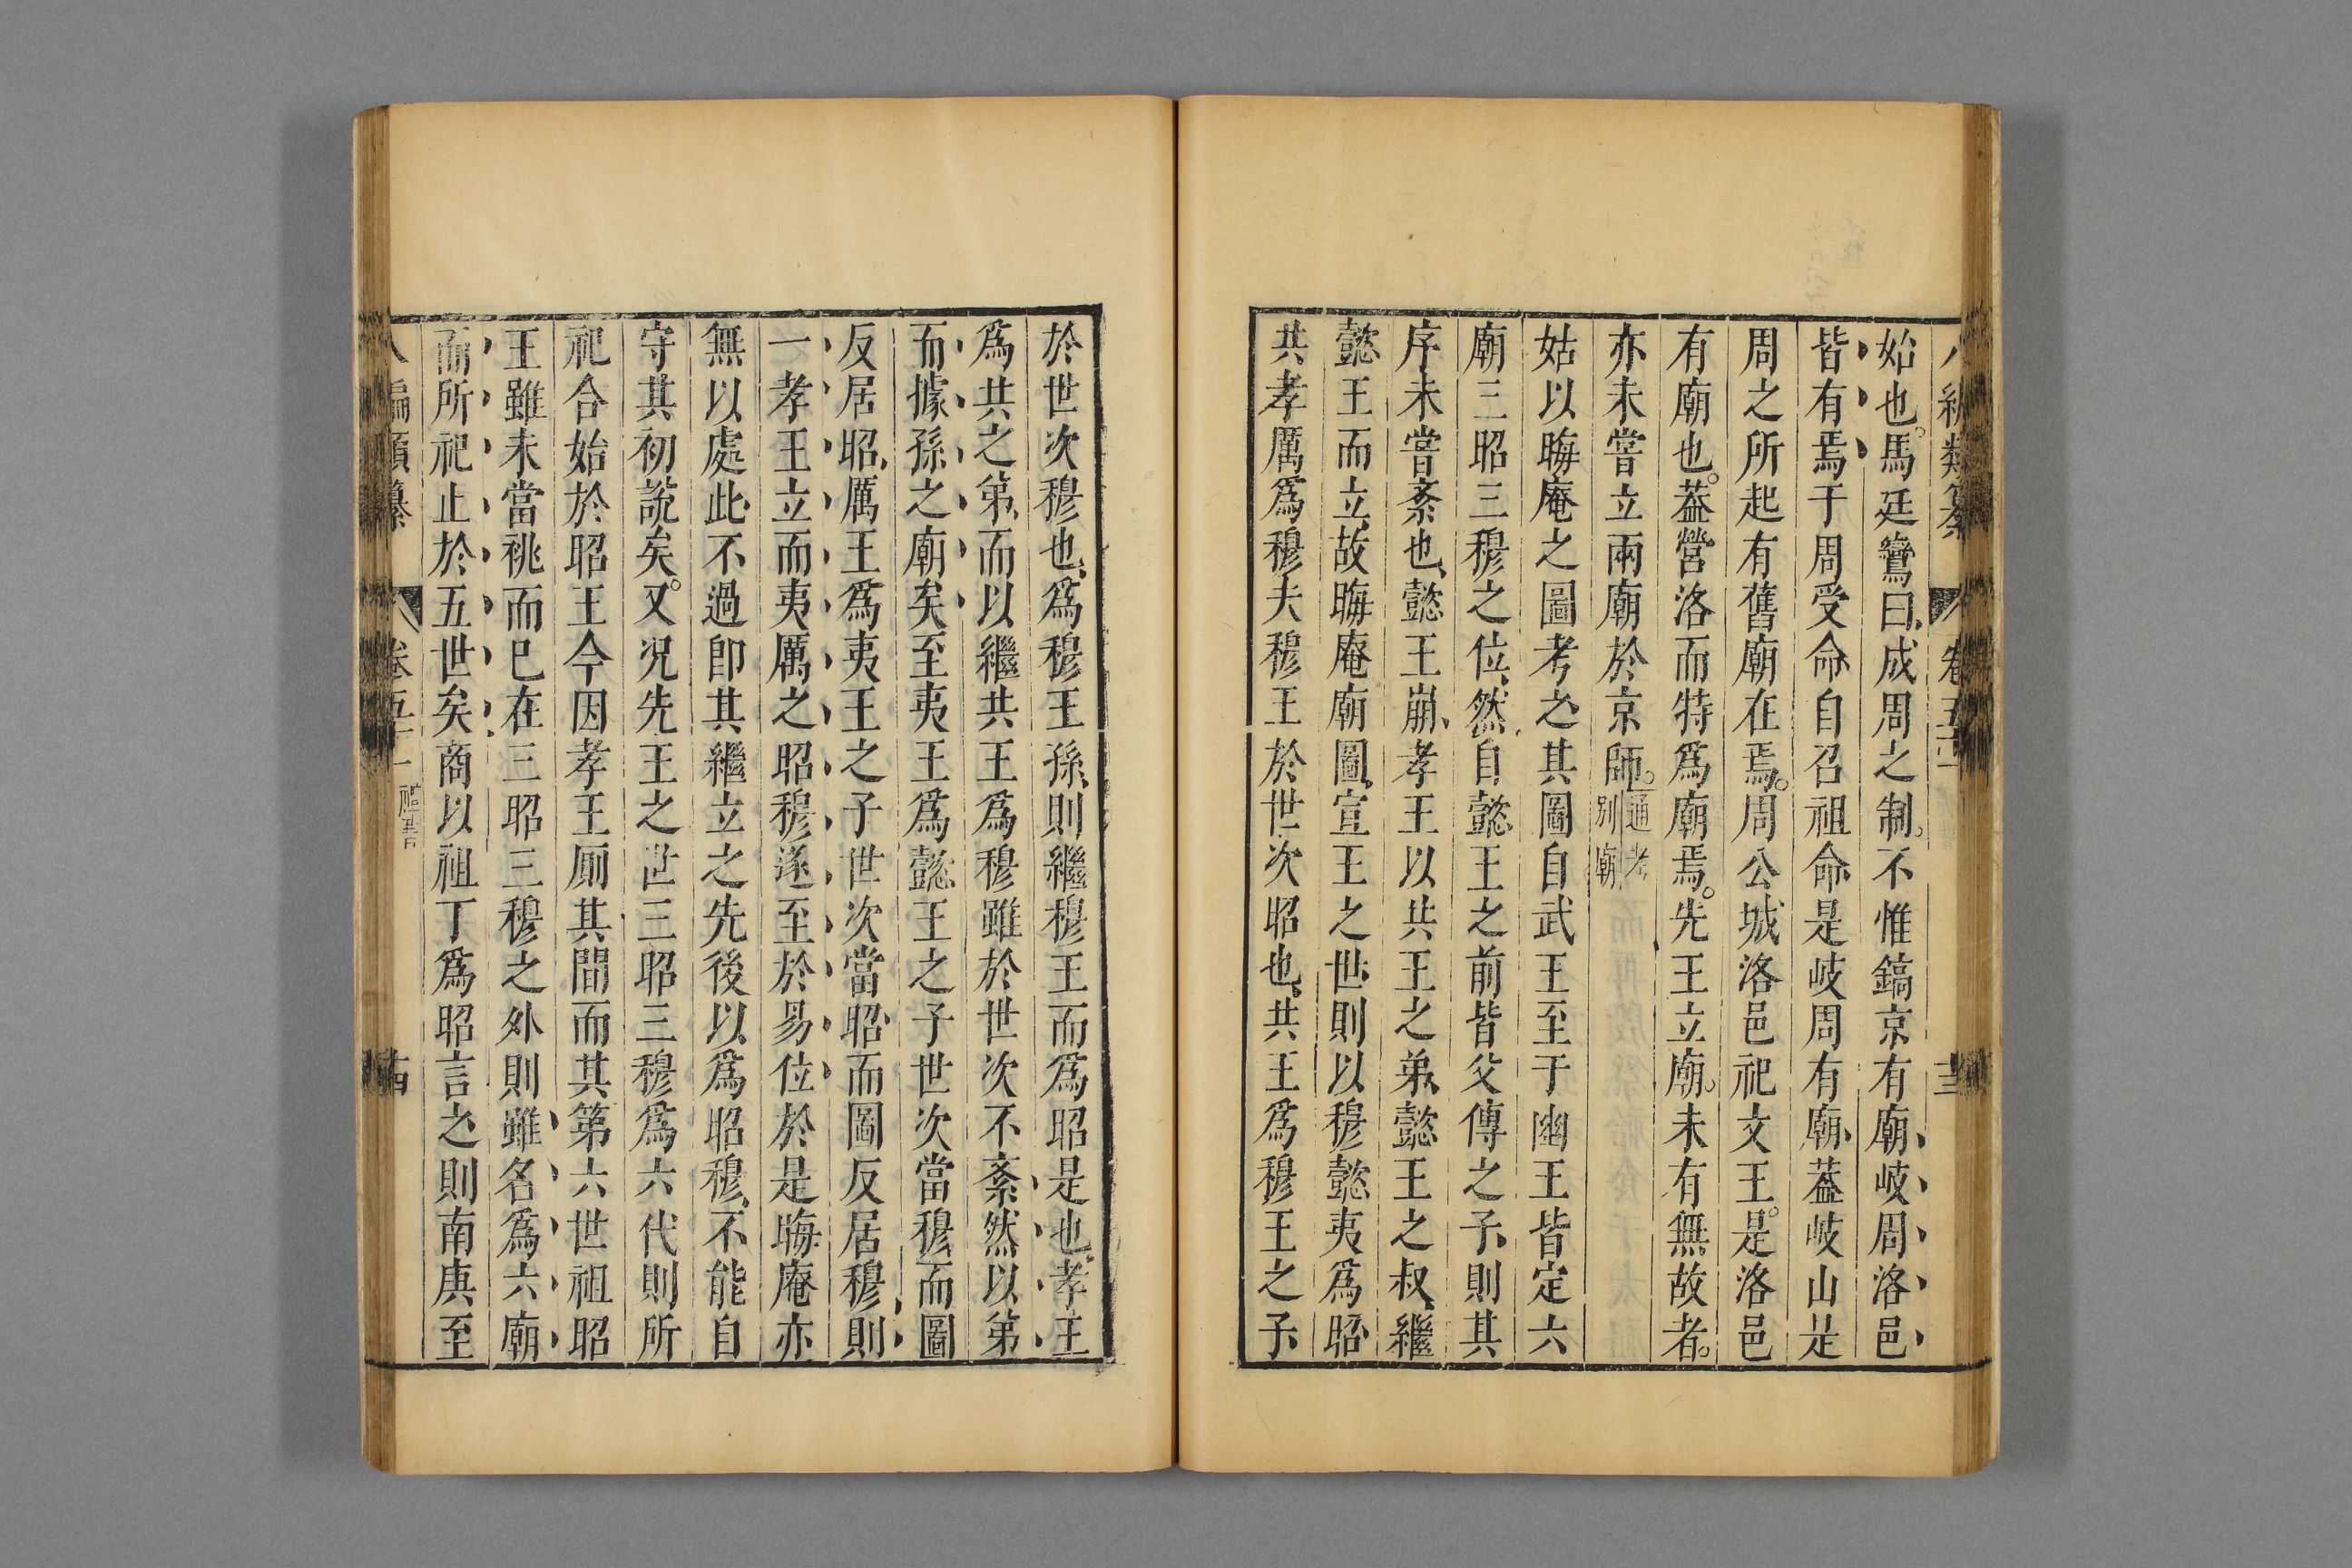 始也馬廷鸞曰成周之制不惟鎬京有廟岐周洛邑
皆有焉于周受命自召祖命是岐周有廟葢岐山是
周之所起有舊廟在焉周公城洛邑祀文王是洛邑
有廟也葢營洛而特爲廟焉先王立廟未有無故者
亦未嘗立兩廟於京師通考別廟
姑以晦庵之圖考之其圖自武王至于幽王皆定六
廟三昭三穆之位然自懿王之前皆父傳之子則其
序未嘗紊也懿王崩孝王以共王之弟懿王之叔繼
懿王而立故晦庵廟圖宣王之世則以穆懿夷爲昭
共孝厲爲穆夫穆王於世次昭也共王爲穆王之子
於世次穆也爲穆王孫則繼穆王而爲昭是也孝王
爲共之第而以繼共王爲穆雖於世次不紊然以第
而據孫之廟矣至夷王爲懿王之子世次當穆而圖
反居昭厲王爲夷王之子世次當昭而圖反居穆則
一孝王立而夷厲之昭穆遂至於易位於是晦庵亦
無以處此不過卽其繼立之先後以爲昭穆不能自
守其初說矣又況先王之世三昭三穆爲六代則所
祀合始於昭王今因孝王厠其間而其第六世祖昭
王雖未當祧而已在三昭三穆之外則雖名爲六廟
而所祀止於五世矣商以祖丁爲昭言之則南庚至
卷五十二